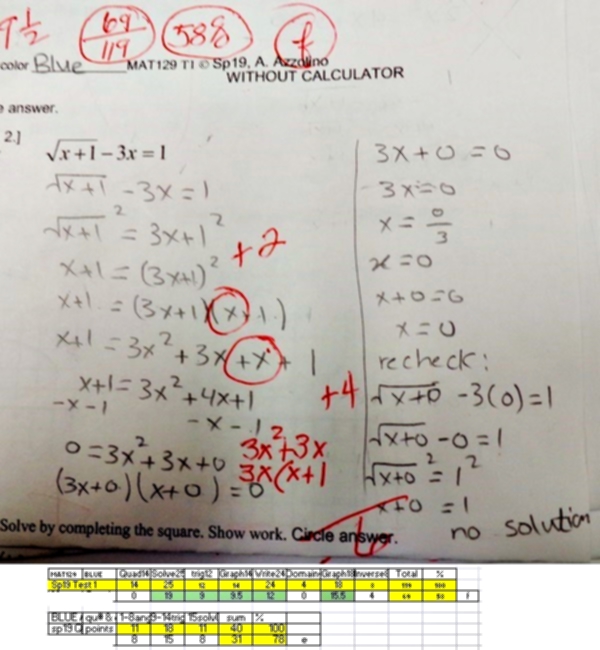 9 1/2 69/119 588 f
color Blue MAT129 T1 © Sp19, A. Azzolino
WITHOUT CALCULATOR
answer.
2.]
√x+1 – 3x = 1
√x+1 - 3x = 1
√x+1 ² = 3x+1 ²
+2
x+1 = (3x+1)²
x+1 = (3x+1)(x+1)
x+1 = 3x² + 3x + x + 1
x+1 = 3x² + 4x + 1
-x-1 -x-1
+4
0 = 3x² + 3x + 0
3x²+3x
(3x+0)(x+0) = 0
3x(x+1
3x+0 = 0
3x = 0
x = 0/3
x = 0
x+0 = 0
x = 0
recheck:
√x+0 - 3(0) = 1
√x+0 - 0 = 1
√x+0 ² = 1²
x+0 = 1
no solution
Solve by completing the square. Show work. Circle answer.
MAT129 BLUE Quad14 Solve25 trig12 Graph14 Write24 Domain4 Graph18 Inverse8 Total %
Sp19 Test 1 14 25 12 14 24 4 18 8 119 100
0 19 9 9.5 12 0 15.5 4 69 58 f
BLUE 15solv sum %
sp19 Q points 11 18 11 40 100
8 15 8 31 78 e